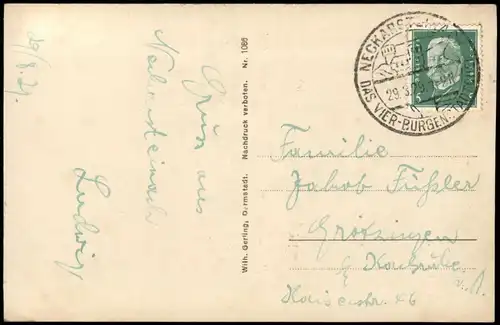 29/8.29.
Gruß aus
Neckarsteinach
Ludwig
Wilh. Gerling, Darmstadt. Nachdruck verboten. Nr. 1086
29.8.29
DAS VIER-BURGEN
Familie
Jakob Füßler
Grötzingen
b/ Karlsruhe
Kaiserstr. 26